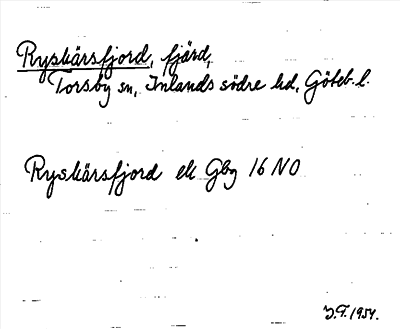 Ryskärsfjord, fjärd,
Torsby sn, Inlands södre hd, Göteb. l.
Ryskärsfjord ek Gbg 16 NO
J.F. 1954.